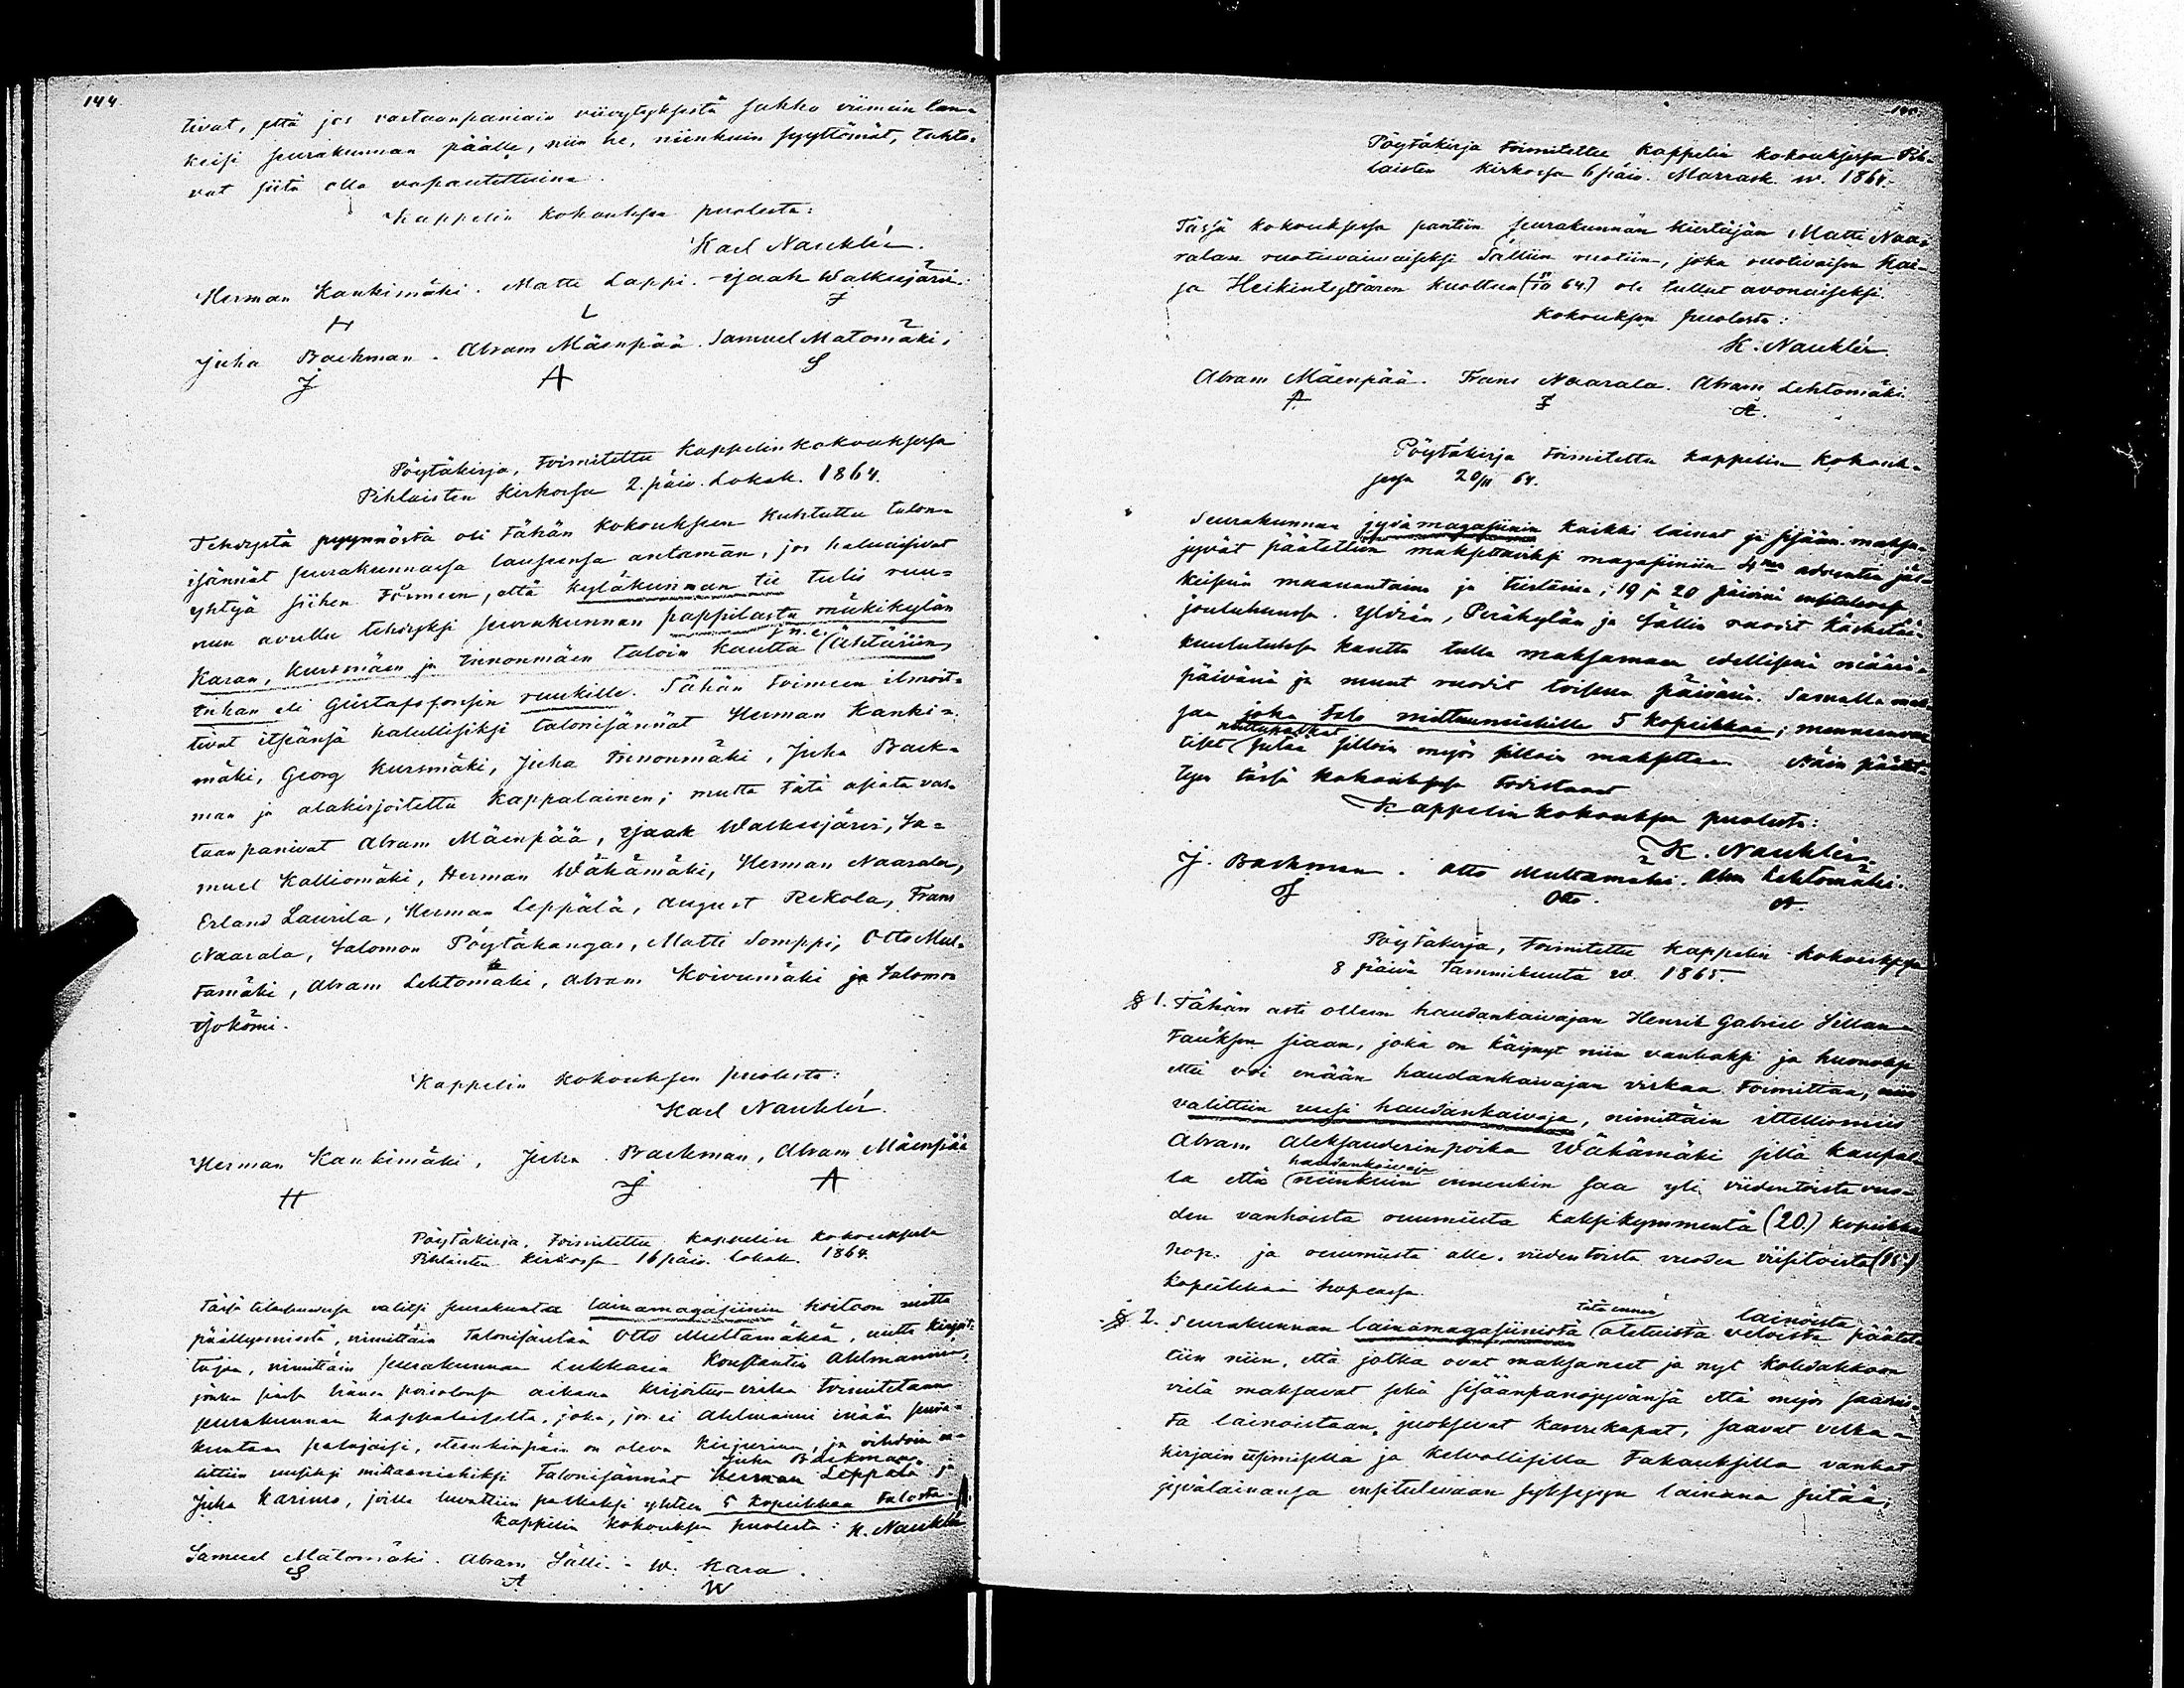 144
tivat, että jos vastaanpaniain viivytyksestä sakko viimein lan-
keisi seurakunnan päälle, niin he, niinkuin syyttömät, tahto-
vat siitä olla vapautettuina.
Kappelin kokouksen puolesta:
Karl Nauklér.
Herman Kankimäki. Matti Lappi. Isaak Walkejärvi.
H L I
Juha Backman. Abram Mäenpää. Samuel Matomäki.
J A S
Pöytäkirja, toimitettu kappelin kokouksessa
Pihlaisten kirkossa 2. päiv. Lokak. 1864.
Tehdystä pyynnöstä oli tähän kokoukseen kuhtuttu talon-
isännät seurakunnassa lausunsa antaman, jos haluaisivat
yhtyä siihen toimeen, että kyläkunnan tie tulis ruu-
nun avulla tehdyksi seurakunnan pappilasta mükikylän
j n. e.
Karan, Kursmäen ja Innonmäen taloin kautta (Ähtäriin
Inhan eli Gustafsforsin ruukille. Tähän toimeen ilmoit-
tivat itsensä halullisiksi talonisännät Herman Kanki-
mäki, Georg Kursmäki, Juha Innonmäki, Juha Back-
man ja alakirjoitettu Kappalainen; mutta tätä asiata vas-
taanpanivat Abram Mäenpää, Isaak Walkejärvi, Sa-
muel Kalliomäki, Herman Wähämäki, Herman Naarala,
Erland Laurila, Herman Leppälä, August Rekola, Frans
Naarala, Salomon Pöytäkangas, Matti Somppi, Otto Mul-
tamäki, Abram Lehtomäki, Abram Koivumäki ja Salomon
Isokömi.
Kappelin kokouksen puolesta:
Karl Nauklér.
Herman Kankimäki, Juha Backman, Abram Mäenpää
H J A
Pöytäkirja, toimitettu kappelin kokouksessa
Pihlaisten kirkossa 16 päiv. Lokak. 1864.
Tässä tilaisuudessa valitsi seurakunta lainamagasiinin hoitoon uutta
päällysmiestä, nimittäin talonisäntää Otto Multamäkeä, uutta kirjoit-
tajaa, nimittäin seurakunnan lukkaria Konstantin Ahlmannin,
jonka siasta hänen poisolonsa aikana kirjoitus-virka toimitetaan
seurakunnan kappalaiselta, joka, jos ei Ahlmanni enään seura-
kuntaan palajaisi, edesenkinpäin on oleva kirjurina, ja vihdoin va-
Juha Backman
littiin uusiksi mittamiehiksi talonisännät Herman Leppälä ja
Juha Karinus, joille luvattiin palkaksi yhteen 5 kopeikkaa talosta.
Kappelin kokouksen puolesta: K. Nauklér
Samuel Matomäki. Abram Sälli. W. Kara.
S A W
145
Pöytäkirja toimitettu kappelin kokouksessa Pih-
laisten kirkossa 6 päiv. Marrask. w. 1864.
Tässä kokouksessa pantiin seurakunnan kiertäjän Matti Naa-
ralan ruotuvaivaiseksi Sälliin ruotiin, joka ruotivaisen Kai-
sa Heikintyttären kuoltua ( 64.) oli tullut avonaiseksi.
Kokouksen puolesta:
K. Nauklér.
Abram Mäenpää. Frans Naarala. Abram Lehtomäki.
A F A.
Pöytäkirja toimitettu kappelin kokouk-
sessa 20/11 64.
Seurakunnan jyvämagasiinin kaikki lainat ja sisään maksu-
jyvät päätettiin maksettaviksi magasiiniin 4:nen adventin jäl-
keisinä maanantaina ja tiistaina, 19 ja 20 päivinä ensitulevassa
joulukuussa. Ylivään, Peräkylän ja Sällin ruodit käsketään
kuulutuksen kautta tulla maksamaan edellisenä määrä-
päivänä ja muut ruodit toisena päivänä. Samalla mak-
saa joka talo mittamiehille 5 kopeikkaa; menneenvuo-
mittapalkat
tiset (pitää silloin myös silloin maksettaa. Näin päätet-
tyn tässä kokouksessa todistavat
Kappelin kokouksen puolesta:
K. Nauklér.
J. Backman. Otto Multamäki. Abm Lehtomäki.
J Otto. A.
Pöytäkirja, toimitettu kappelin kokouksessa
8 päivä Tammikuuta w. 1865.
§ 1. Tähän asti olleen haudankaivajan Henrik Gabriel Sillan-
tauksen siaan, joka on käynyt niin vanhaksi ja huonoksi
ettei voi enään haudankaivajan virkaa toimittaa, niin
valittiin uusi haudankaivaja, nimittäin itsellismies
Abram Aleksanderinpoika Wähämäki sillä kaupal-
haudankaivaja
la että (niinkuin ennenkin saa yli viidentoista vuo-
den vanhoista ruumiista kaksikymmentä (20.) kopeikkaa
hop. ja ruumiista alle viidentoista vuoden viisitoista (15.)
kopeikkaa hopeassa.
tätä ennen lainoista
§ 2. Seurakunnan lainamagasiinista (otetuista veloista päätet-
tiin niin, että jotka ovat maksaneet ja nyt kohdakkoon
vielä maksavat sekä sisäänpanojyvänsä että myös saavis-
ta lainoistaan juoksevat kasvukapat, saavat velka-
kirjain uusimisella ja kelvollisilla takauksilla vanhat
jyvälainansa ensitulevaan syksyyn lainana pitää;